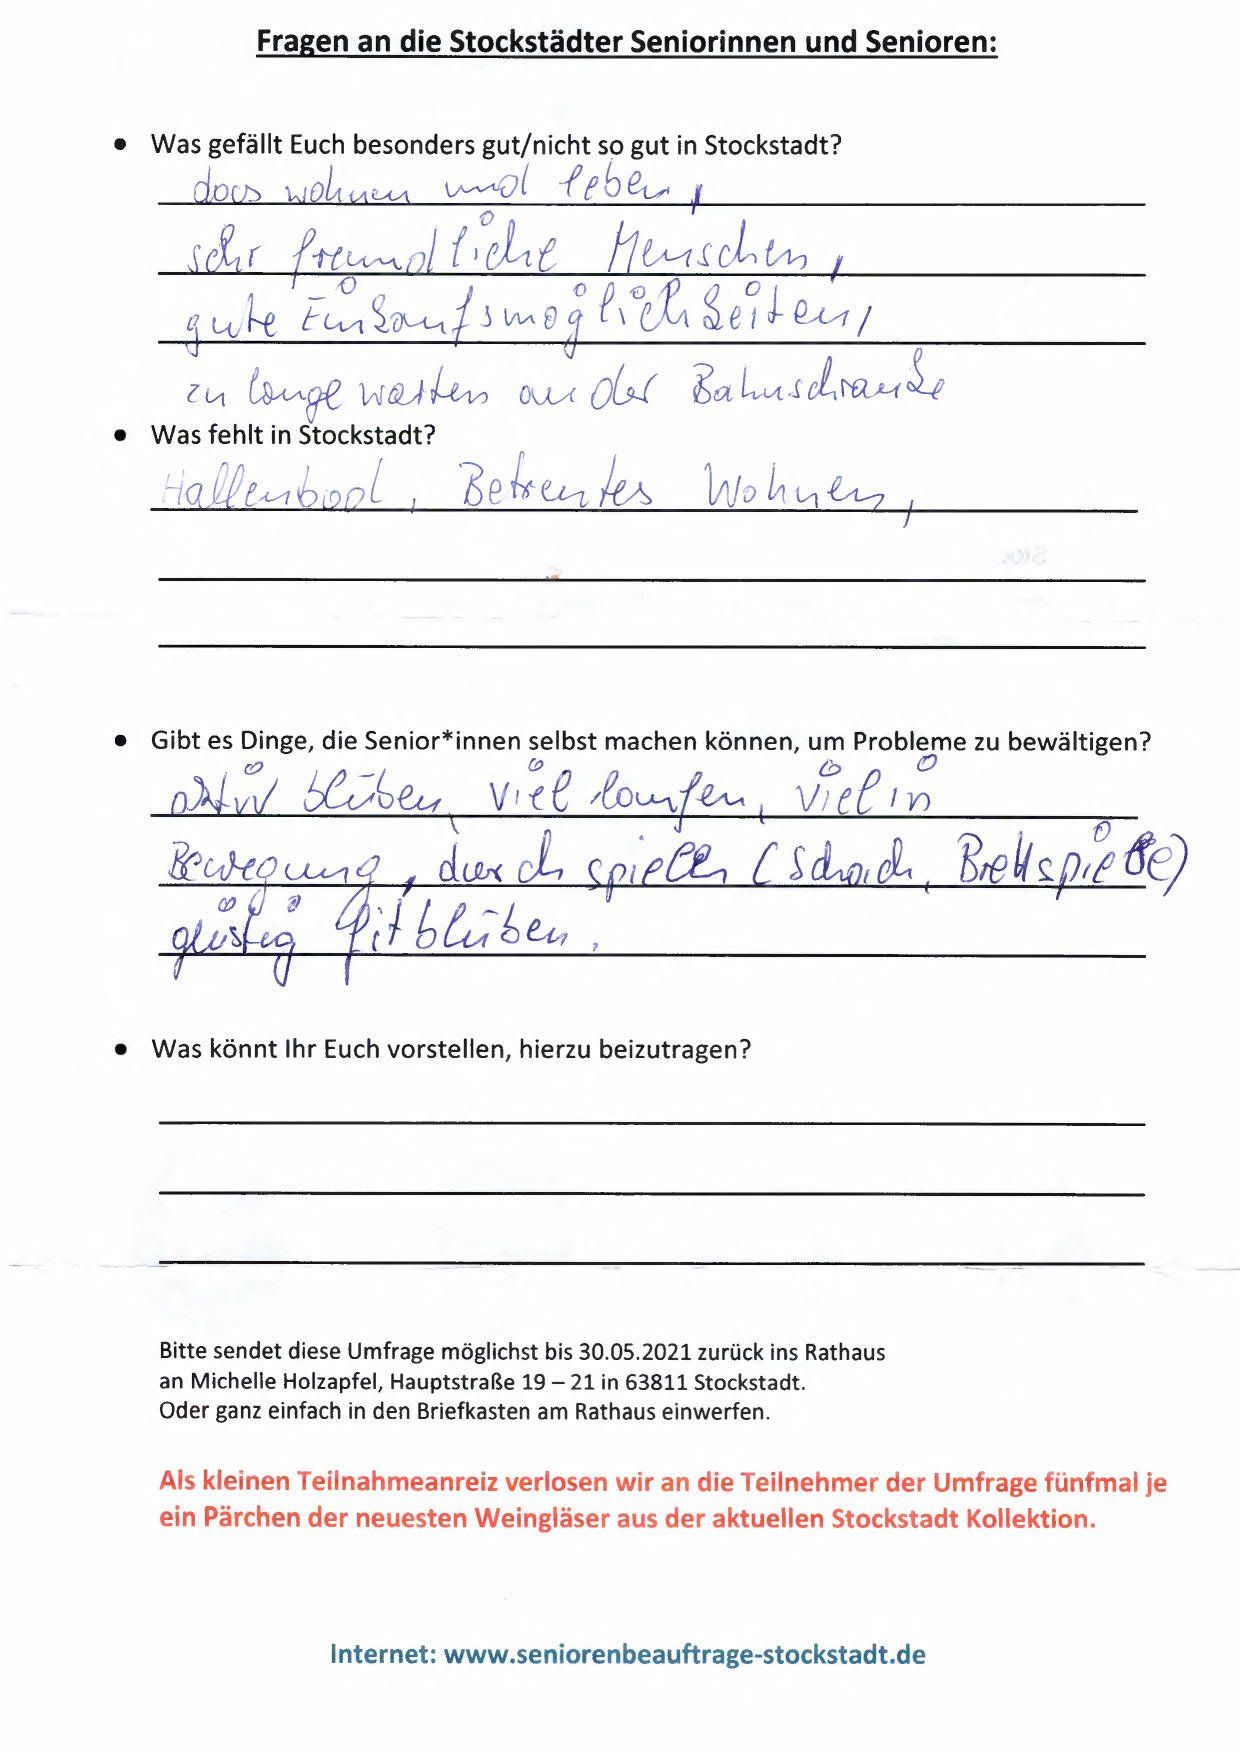 Fragen an die Stockstädter Seniorinnen und Senioren:
• Was gefällt Euch besonders gut/nicht so gut in Stockstadt?
das wohnen und leben,
sehr freundliche Menschen,
gute Einkaufsmöglichkeiten,
zu lange warten an der Bahnschranke
• Was fehlt in Stockstadt?
Hallenbad, Betreutes Wohnen,
• Gibt es Dinge, die Senior*innen selbst machen können, um Probleme zu bewältigen?
aktiv bleiben, viel laufen, viel in
Bewegung, durch spielen (Schach, Brettspiele)
geistig fit bleiben.
• Was könnt Ihr Euch vorstellen, hierzu beizutragen?
Bitte sendet diese Umfrage möglichst bis 30.05.2021 zurück ins Rathaus
an Michelle Holzapfel, Hauptstraße 19 – 21 in 63811 Stockstadt.
Oder ganz einfach in den Briefkasten am Rathaus einwerfen.
Als kleinen Teilnahmeanreiz verlosen wir an die Teilnehmer der Umfrage fünfmal je
ein Pärchen der neuesten Weingläser aus der aktuellen Stockstadt Kollektion.
Internet: www.seniorenbeauftrage-stockstadt.de